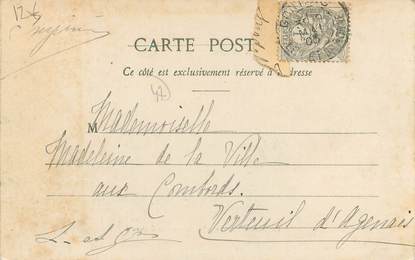 12
CARTE POST
Ce côté est exclusivement réservé à
42
Mademoiselle
Madeleine de la Ville
aux Combords.
Verteuil d'Agenais
L-et-Gne